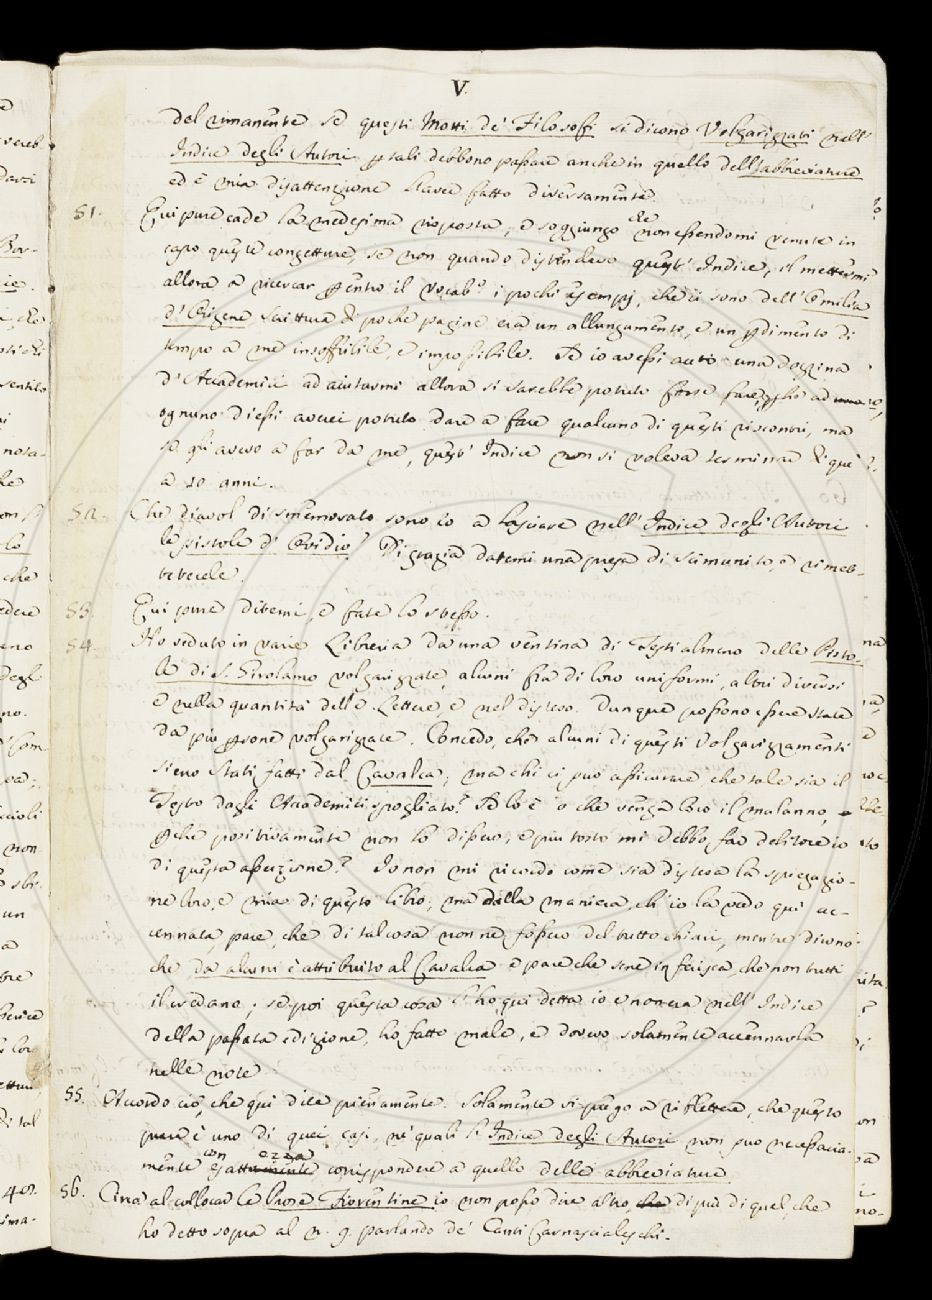 V.
del rimanente se questi Motti de' Filosofi si dicono Volgarizzati nell'
Indice degli Autori p tali debbono passare anche in quello dell'abbreviature
ed è mia disattenzione l'aver fatto diversamente.
51. Qui pure cade la medesima risposta, e soggiungo che non essendomi venute in
capo queste congetture, se non quando distendevo quest' Indice, il mettermi
allora a ricercar p entro il Vocab.º i pochi esempj, che ci sono dell'Omilia
d'Origene Scrittura di poche pagine era un allungamento, e un pdimento di
tempo a me insoffribile, e impossibile. Se io avessi auto una dozzina
d'Accademici ad aiutarmi allora si sarebbe potuto forse fare, pchè ad
ognuno d'essi avrei potuto dare a fare qualcuno di questi riscontri, ma
se gli avevo a far da me, quest' Indice non si voleva terminar di quì
a 10 anni.
52. Che diavol di smemorato sono io a lasciare nell'Indice degli Autori
le pistole d'Ovidio? Di grazia datemi una presa di scimunito, e rimet-
tetecele.
53. Qui pure ditemi, e fate lo stesso.
54. Ho veduto in varie Librerie da una ventina di Testi almeno delle Pisto-
le di S. Girolamo volgarizzate, alcuni fra di loro uniformi, altri diversi
e nella quantità delle Lettere e nel disteso. Dunque possono essere state
da più psone volgarizzate. Concedo, che alcuni di questi Volgarizzamenti
sieno stati fatti dal Cavalca; ma chi ci può assicurare, che tale sia il
Testo dagli Accademici spogliato? Se lo è o che venga loro il malanno,
pchè positivamente non lo dissero, e più tosto mi debbo far debitore io
di questa asserzione? Io non mi ricordo come sia distesa la spiegazio-
ne loro, e mia di questo libro; ma dalla maniera, ch'io la vedo quì ac-
cennata, pare, che di tal cosa non ne fossero del tutto chiari, mentre dicono
che da alcuni è attribuito al Cavalca e pare che se ne inferisca, che non tutti
il credano; se poi questa cosa l'ho quì detta io e non era nell'Indice
della passata edizione, ho fatto male, e dovevo solamente accennarla
nelle note.
55. Accordo ciò, che quì dite pienamente. Solamente vi prego a riflettere, che questo
pure è uno di quei casi, ne' quali l'Indice degli Autori non può necessaria-
mente con esattezza corrispondere a quello delle abbreviature.
56. Circa al collocar le Prose Fiorentine io non posso dire altro di più di quel, che
ho detto sopra al n. 9. parlando de' Canti Carnascialeschi.